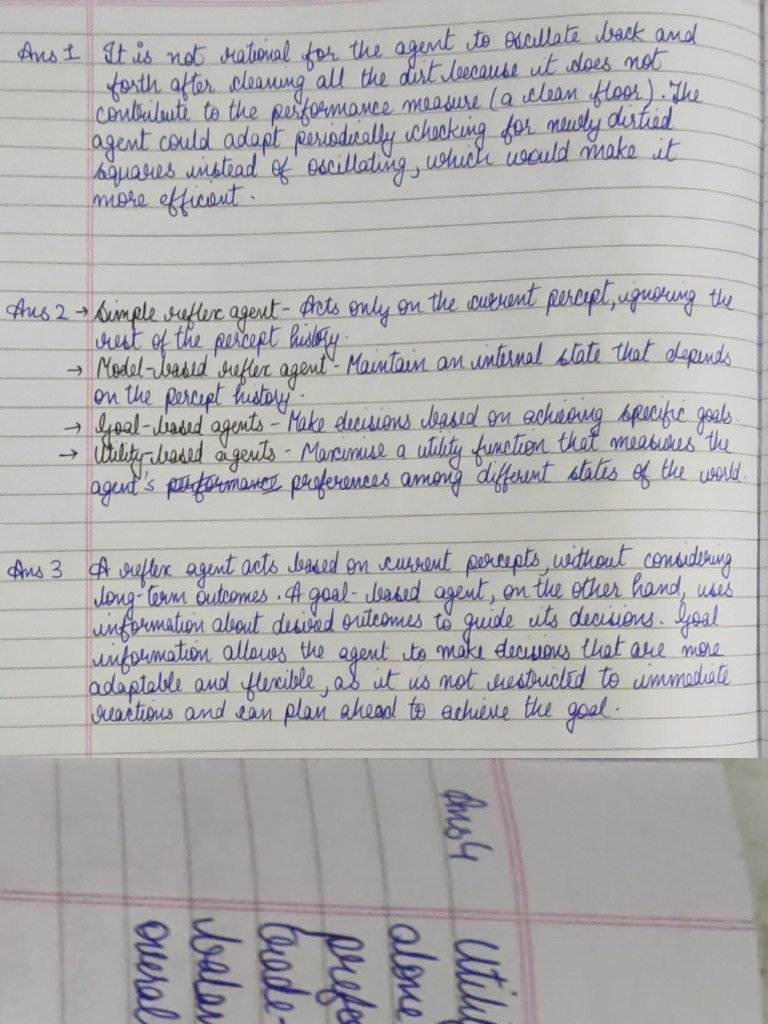 Ans 1 It is not rational for the agent to oscillate back and
forth after cleaning all the dirt because it does not
contribute to the performance measure (a clean floor). The
agent could adapt periodically checking for newly dirtied
squares instead of oscillating, which would make it
more efficient.
Ans 2 → Simple reflex agent - Acts only on the current percept, ignoring the
rest of the percept history.
→ Model-based reflex agent - Maintain an internal state that depends
on the percept history.
→ Goal-based agents - Make decisions based on achieving specific goals.
→ Utility-based agents - Maximise a utility function that measures the
agent's performance preferences among different states of the world.
Ans 3 A reflex agent acts based on current percepts, without considering
long-term outcomes. A goal-based agent, on the other hand, uses
information about desired outcomes to guide its decisions. Goal
information allows the agent to make decisions that are more
adaptable and flexible, as it is not restricted to immediate
reactions and can plan ahead to achieve the goal.
Ans 4
alone
trade-